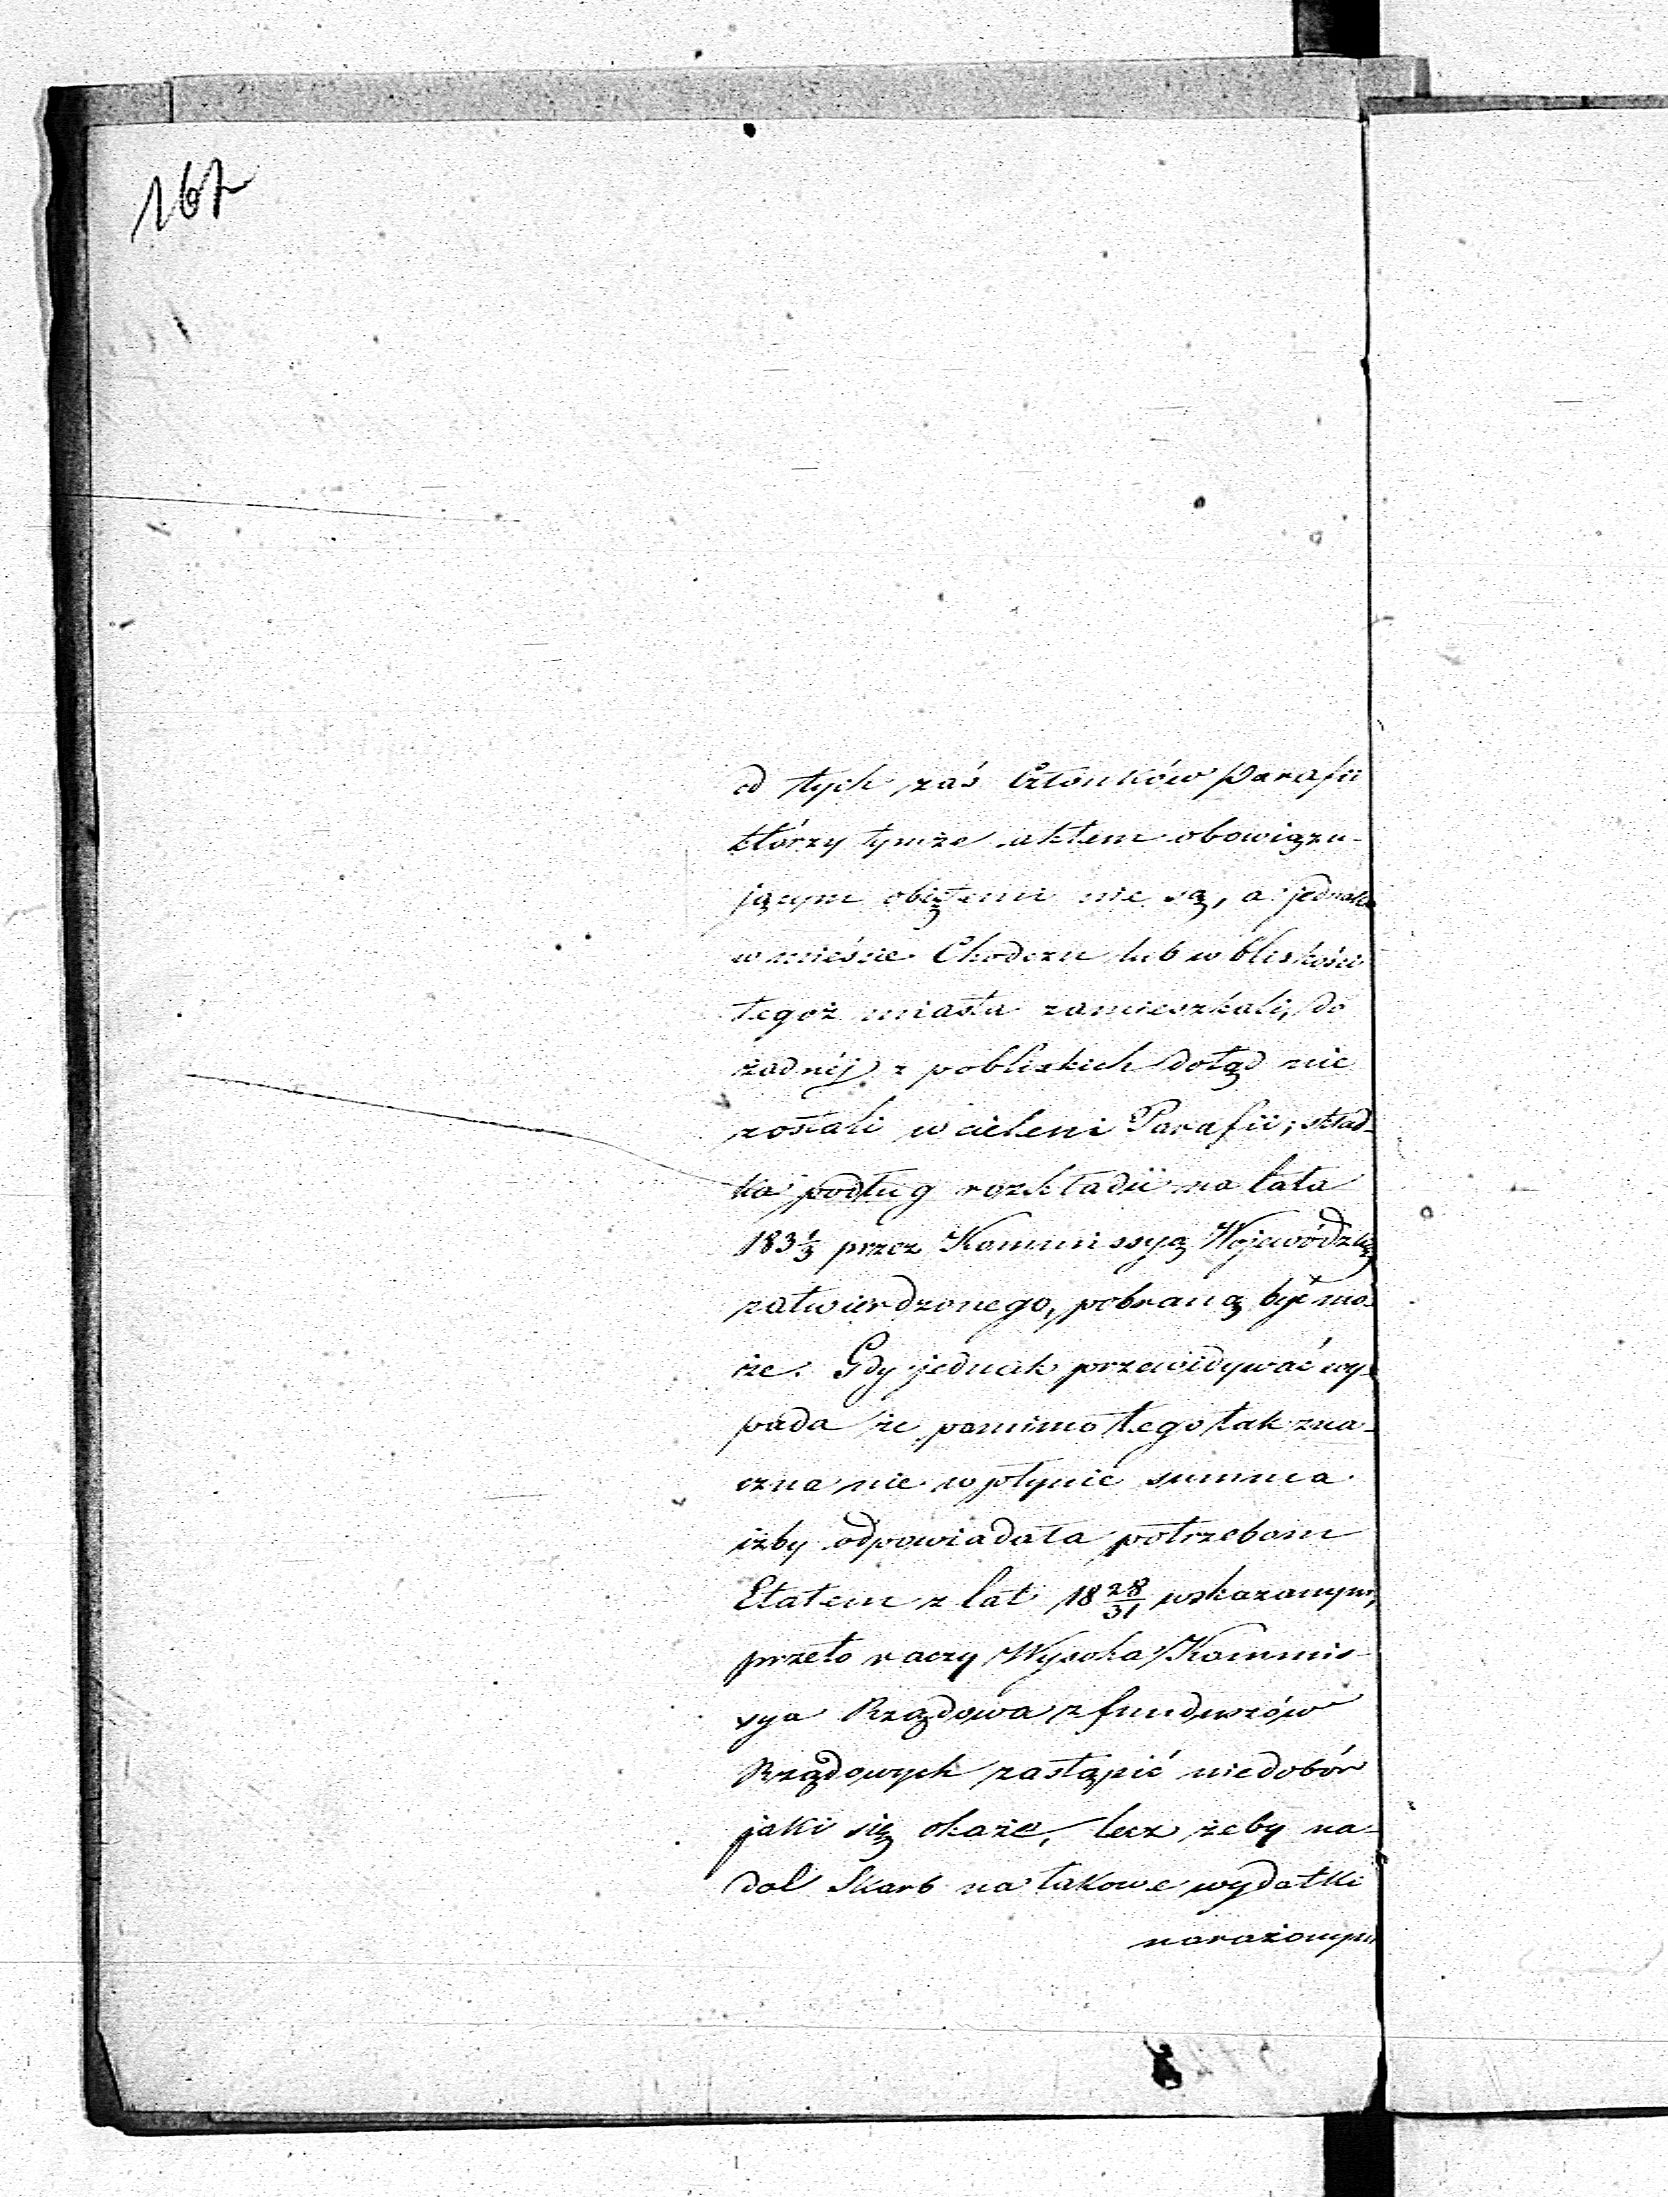 167
od tych zaś Członków Parafii
którzy tymże aktem obowiązu-
jącym objętemi nie są, a jednak
w mieście Chodczu lub w bliskości
tegoż miasta zamieszkali, do
żadnéj z pobliskich dotąd nie
zostali wcieleni Parafii; skład-
ka podług rozkładu na lata
183 1/3 przez Kommissyą Wojewódzką
zatwierdzonego, pobraną być mo-
że. Gdy jednak przewidywać wy-
pada że pomimo tego tak zna-
czna nie wpłynie summa
iżby odpowiadała potrzebom
Etatem z lat 18 28/31 wskazanym,
przeto raczy Wysoka Kommis-
sya Rządowa z funduszów
Rządowych zastąpić niedobór
jaki się okaże, lecz żeby na-
dal Skarb na takowe wydatki
narażonym